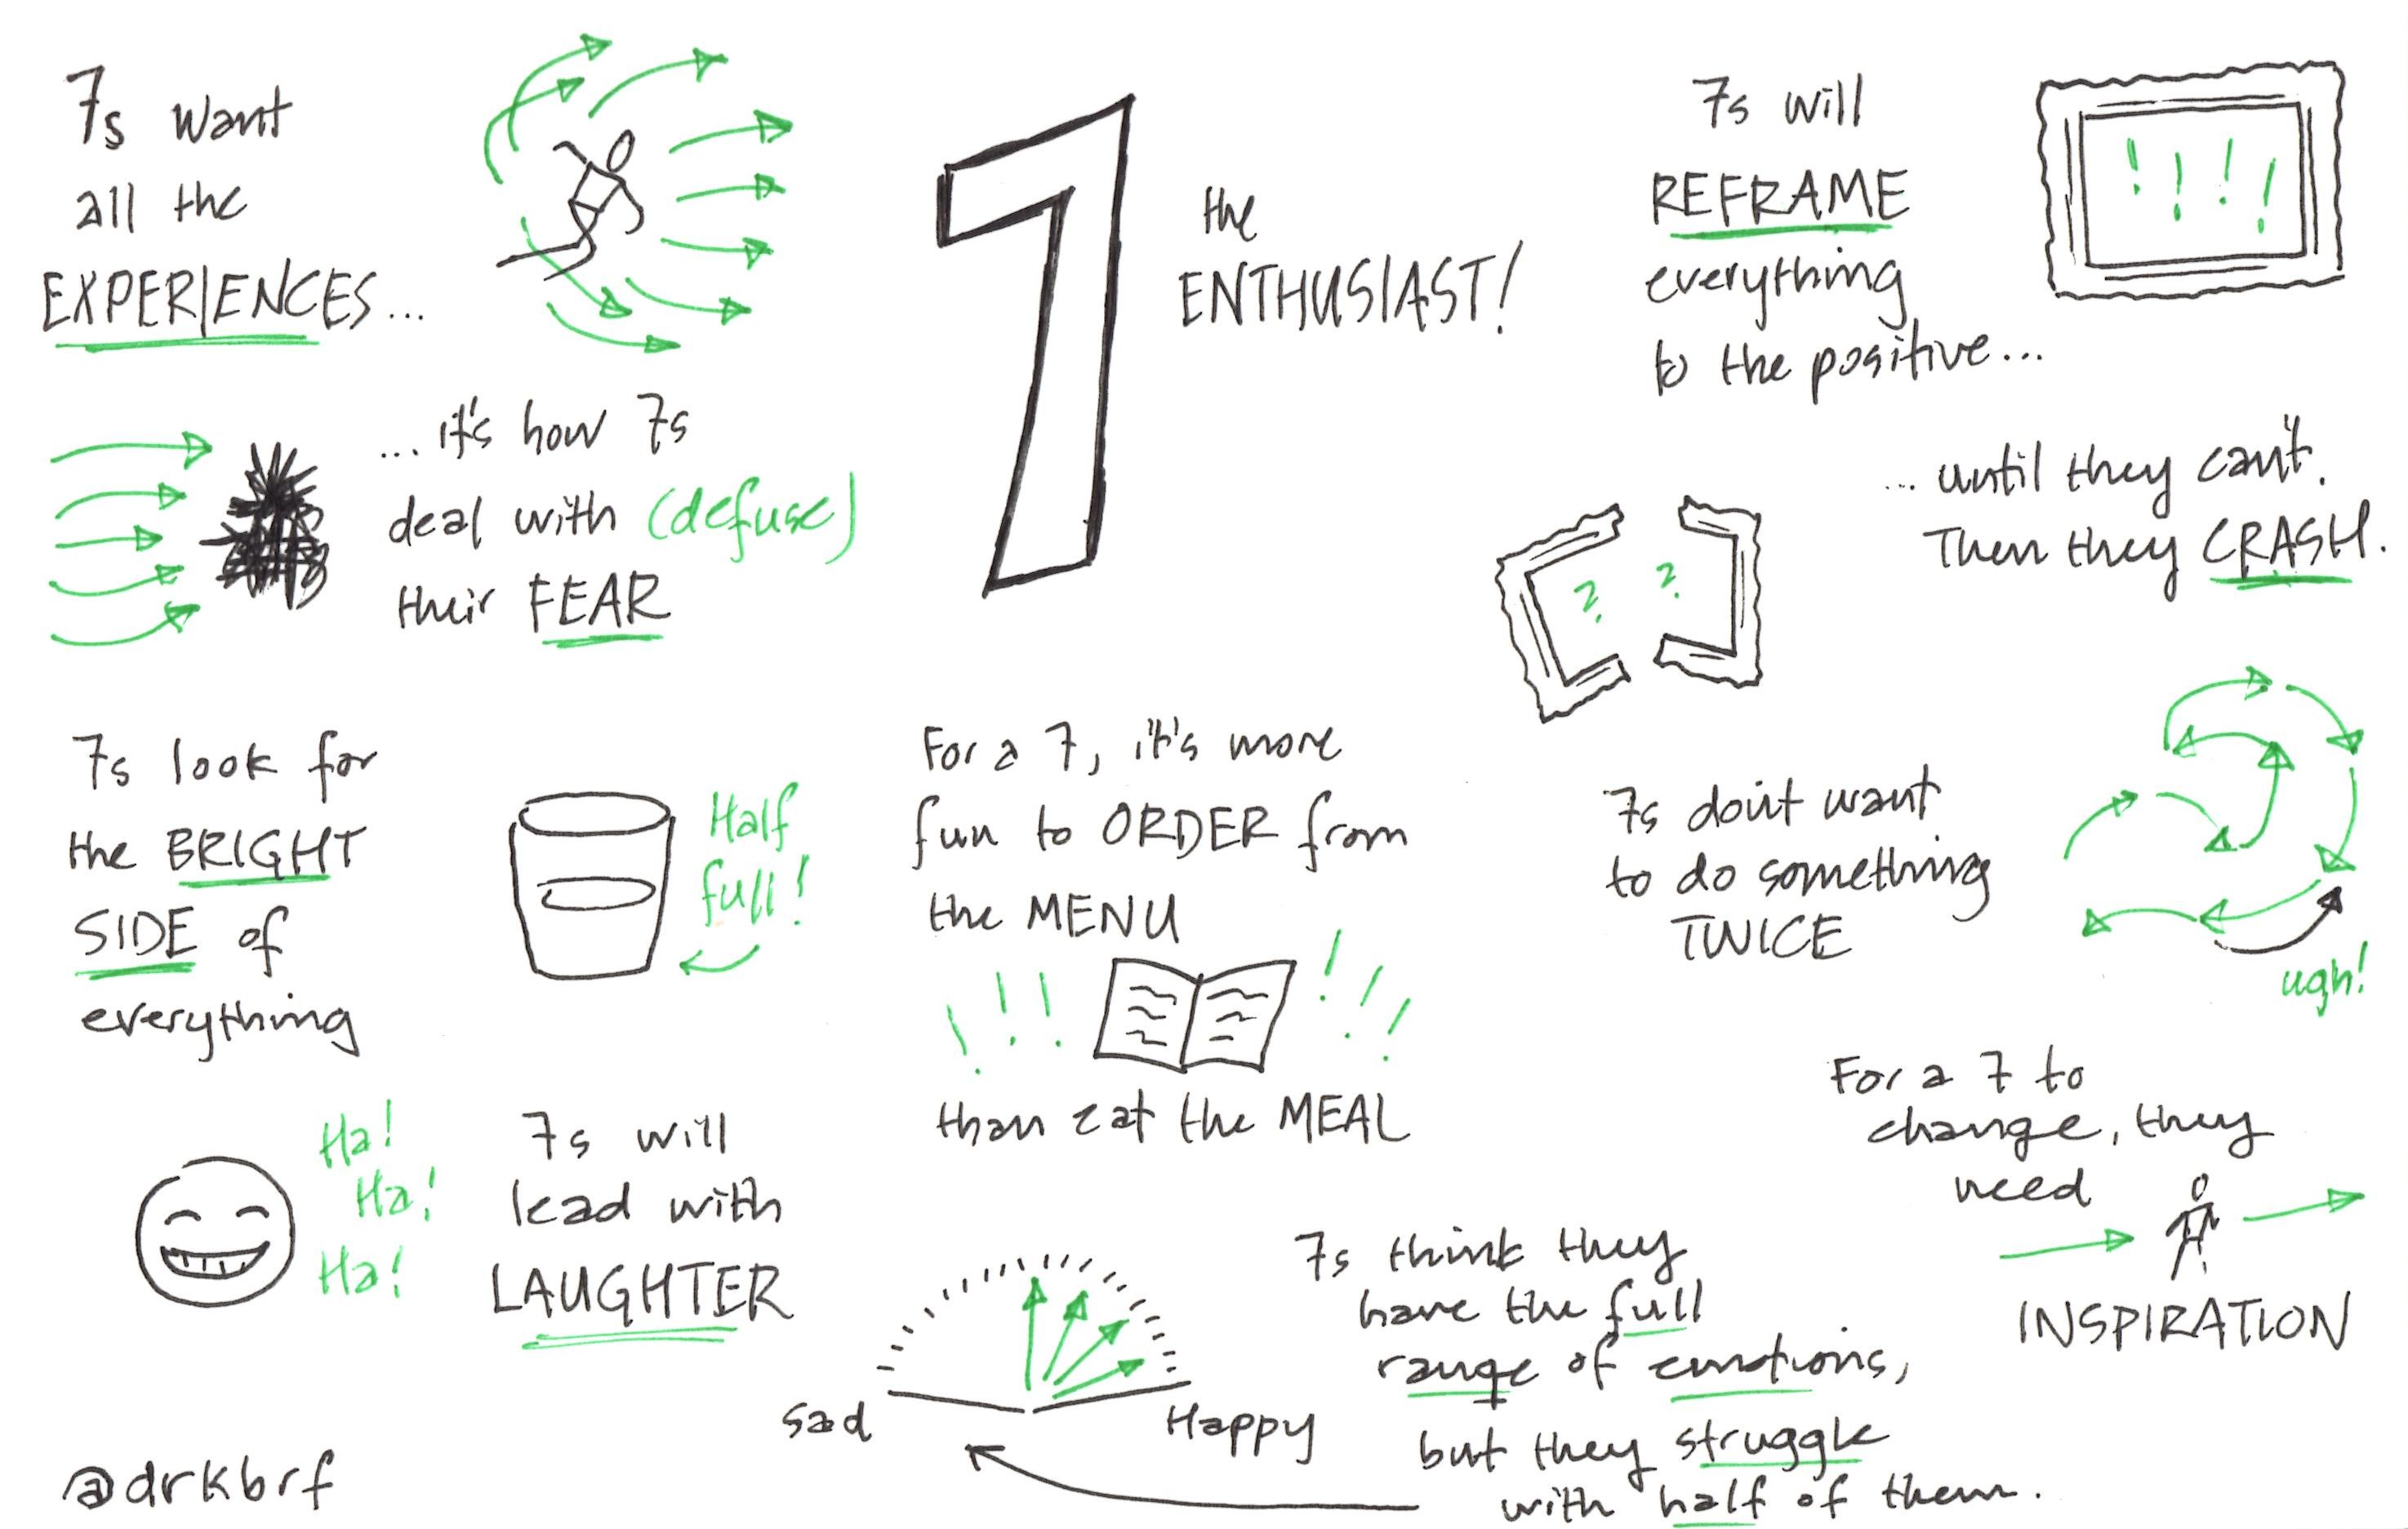 7s want
all the
EXPERIENCES...
...it's how 7s
deal with (defuse)
their FEAR
7
the
ENTHUSIAST!
7s will
REFRAME
everything
to the positive...
! ! ! !
...until they can't.
Then they CRASH.
? ?
7s look for
the BRIGHT
SIDE of
everything
Half
full!
For a 7, it's more
fun to ORDER from
the MENU
! ! ! ! ! !
than eat the MEAL
7s don't want
to do something
TWICE
ugh!
Ha!
Ha!
Ha!
7s will
lead with
LAUGHTER
For a 7 to
change, they
need
INSPIRATION
7s think they
have the full
range of emotions,
but they struggle
with half of them.
Sad
Happy
@drkbrf